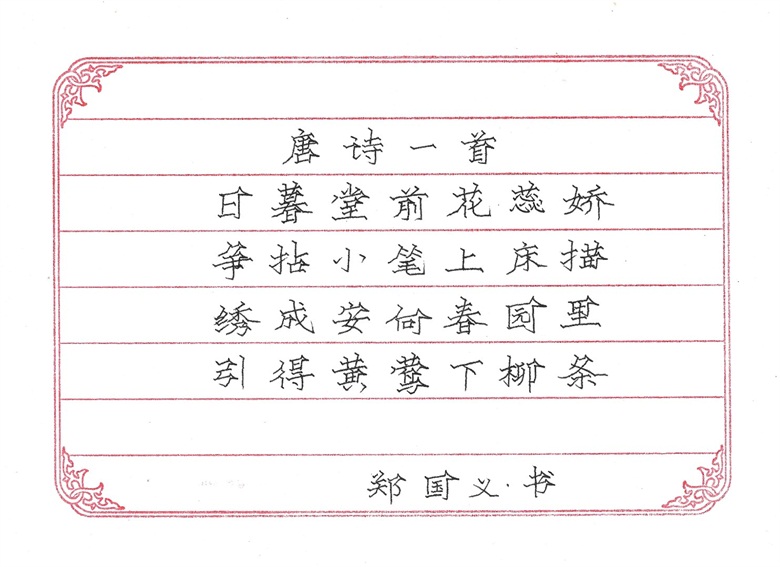 唐诗一首
日暮堂前花蕊娇
争拈小笔上床描
绣成安向春园里
引得黄莺下柳条
郑国义·书